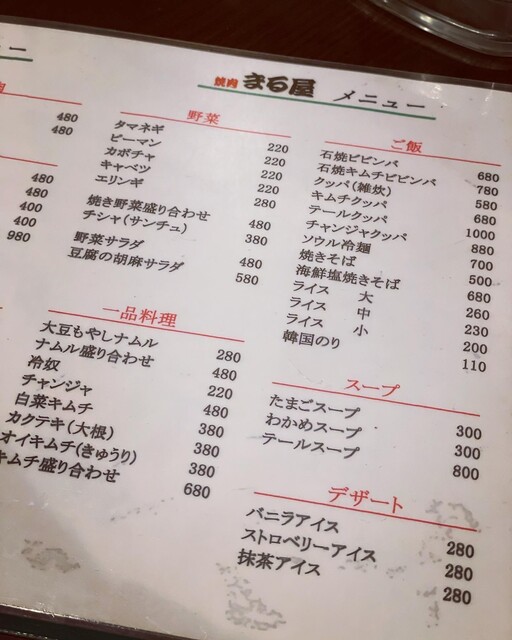 ュー
480
480
480
480
400
400
980
焼肉 まる屋 メニュー
野菜
タマネギ 220
ピーマン 220
カボチャ 220
キャベツ 220
エリンギ 280
焼き野菜盛り合わせ 480
チシャ(サンチュ) 380
野菜サラダ 480
豆腐の胡麻サラダ 580
一品料理
大豆もやしナムル 280
ナムル盛り合わせ 480
冷奴 220
チャンジャ 480
白菜キムチ 380
カクテキ(大根) 380
オイキムチ(きゅうり) 380
キムチ盛り合わせ 680
ご飯
石焼ビビンバ 680
石焼キムチビビンバ 780
クッパ(雑炊) 580
キムチクッパ 680
テールクッパ 1000
チャンジャクッパ 880
ソウル冷麺 700
焼きそば 500
海鮮塩焼きそば 680
ライス 大 260
ライス 中 230
ライス 小 200
韓国のり 110
スープ
たまごスープ 300
わかめスープ 300
テールスープ 800
デザート
バニラアイス 280
ストロベリーアイス 280
抹茶アイス 280